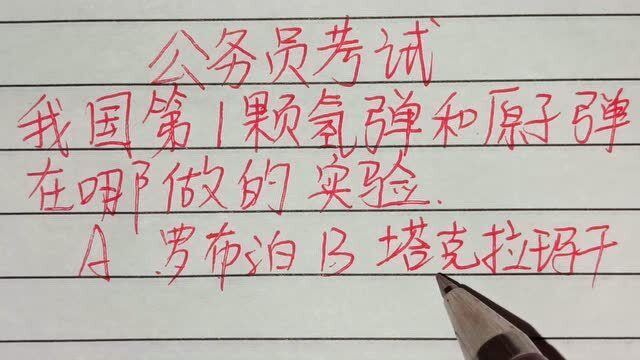 公务员考试
我国第1颗氢弹和原子弹
在哪做的实验.
A 罗布泊 B 塔克拉玛干